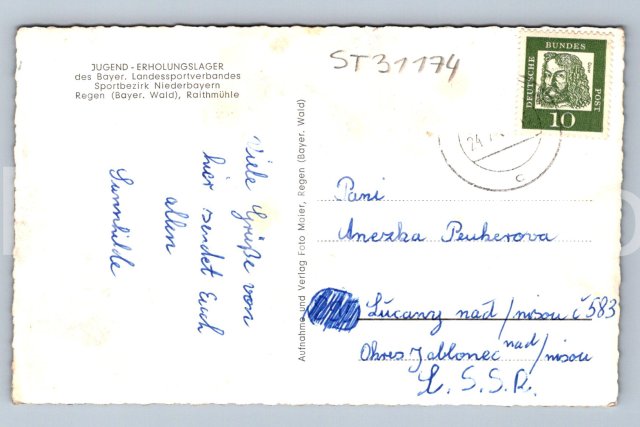 JUGEND - ERHOLUNGSLAGER
des Bayer. Landessportverbandes
Sportbezirk Niederbayern
Regen (Bayer. Wald), Raithmühle
Viele Grüße von
hier sendet Euch
allen
Sunnhilde
Aufnahme und Verlag Foto Maier, Regen (Bayer. Wald)
ST31174
DEUTSCHE BUNDES POST
10
24.
c
Pani
Anezka Peukerova
Lúcany nad/nisou č 583
Okres Jablonec nad/nisou
Č.S.S.R.